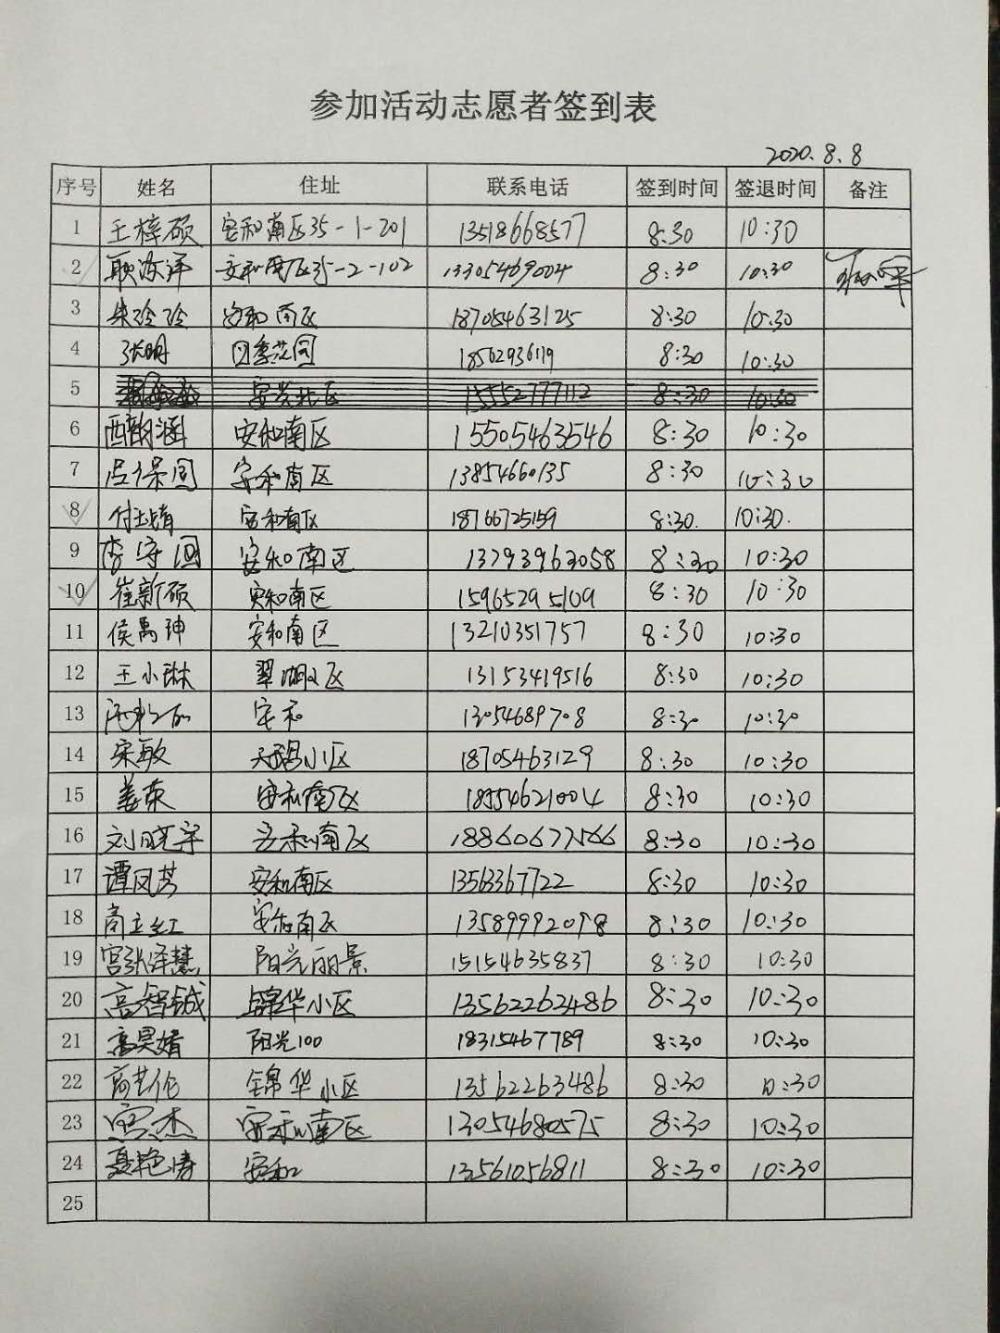 参加活动志愿者签到表
2020.8.8
序号 姓名 住址 联系电话 签到时间 签退时间 备注
1 王梓硕 安和南区35-1-201 13518668577 8:30 10:30
2 安和南区35-2-102 13305469004 8:30 10:30
3 朱玲玲 安和南区 18705463125 8:30 10:30
4 张明 四季花园 18562936119 8:30 10:30
5 安兴北区 15552777112 8:30 10:30
6 酉韵涵 安和南区 15505463546 8:30 10:30
7 吕保国 安和南区 13854660135 8:30 10:30
8 安和南区 18766725159 8:30. 10:30.
9 李守国 安和南区 13793963058 8:30 10:30
10 崔新硕 安和南区 15965295109 8:30 10:30
11 侯禹珅 安和南区 13210351757 8:30 10:30
12 王小琳 翠湖小区 13153419516 8:30 10:30
13 安和 13054689708 8:30 10:30
14 宋敏 小区 18705463129 8:30 10:30
15 姜荣 安和南区 18554621004 8:30 10:30
16 刘晓宇 安和南区 18860677566 8:30 10:30
17 谭凤芳 安和南区 13563367722 8:30 10:30
18 商立红 安和南区 13589992098 8:30 10:30
19 宫张泽慧 阳光丽景 15154635837 8:30 10:30
20 高智铖 锦华小区 13562262486 8:30 10:30
21 高昊婧 阳光100 18315467789 8:30 10:30
22 商艺伦 锦华小区 13562263486 8:30 10:30
23 宫杰 安和南区 13054680575 8:30 10:30
24 聂艳涛 安和 13561056811 8:30 10:30
25